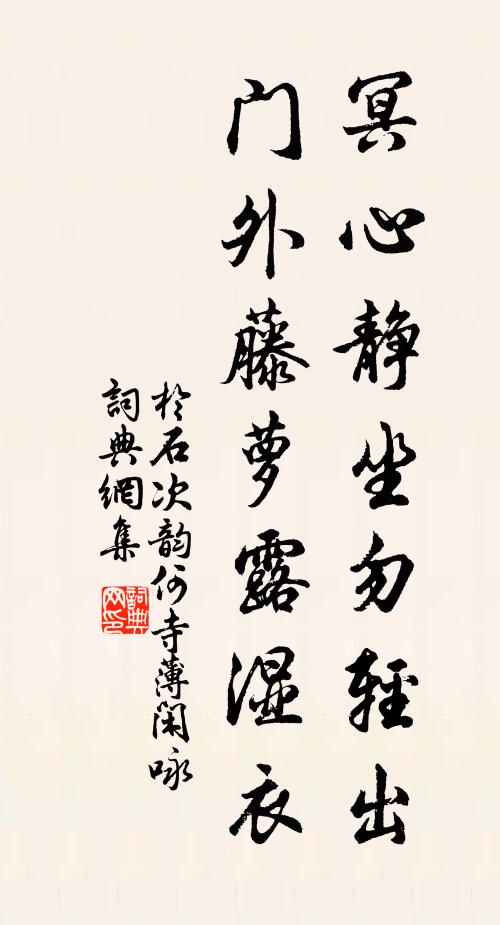 冥心静坐勿輕出
門外藤萝露濕衣
於石次韵何寺薄閑咏
詞典網集
詞典网印